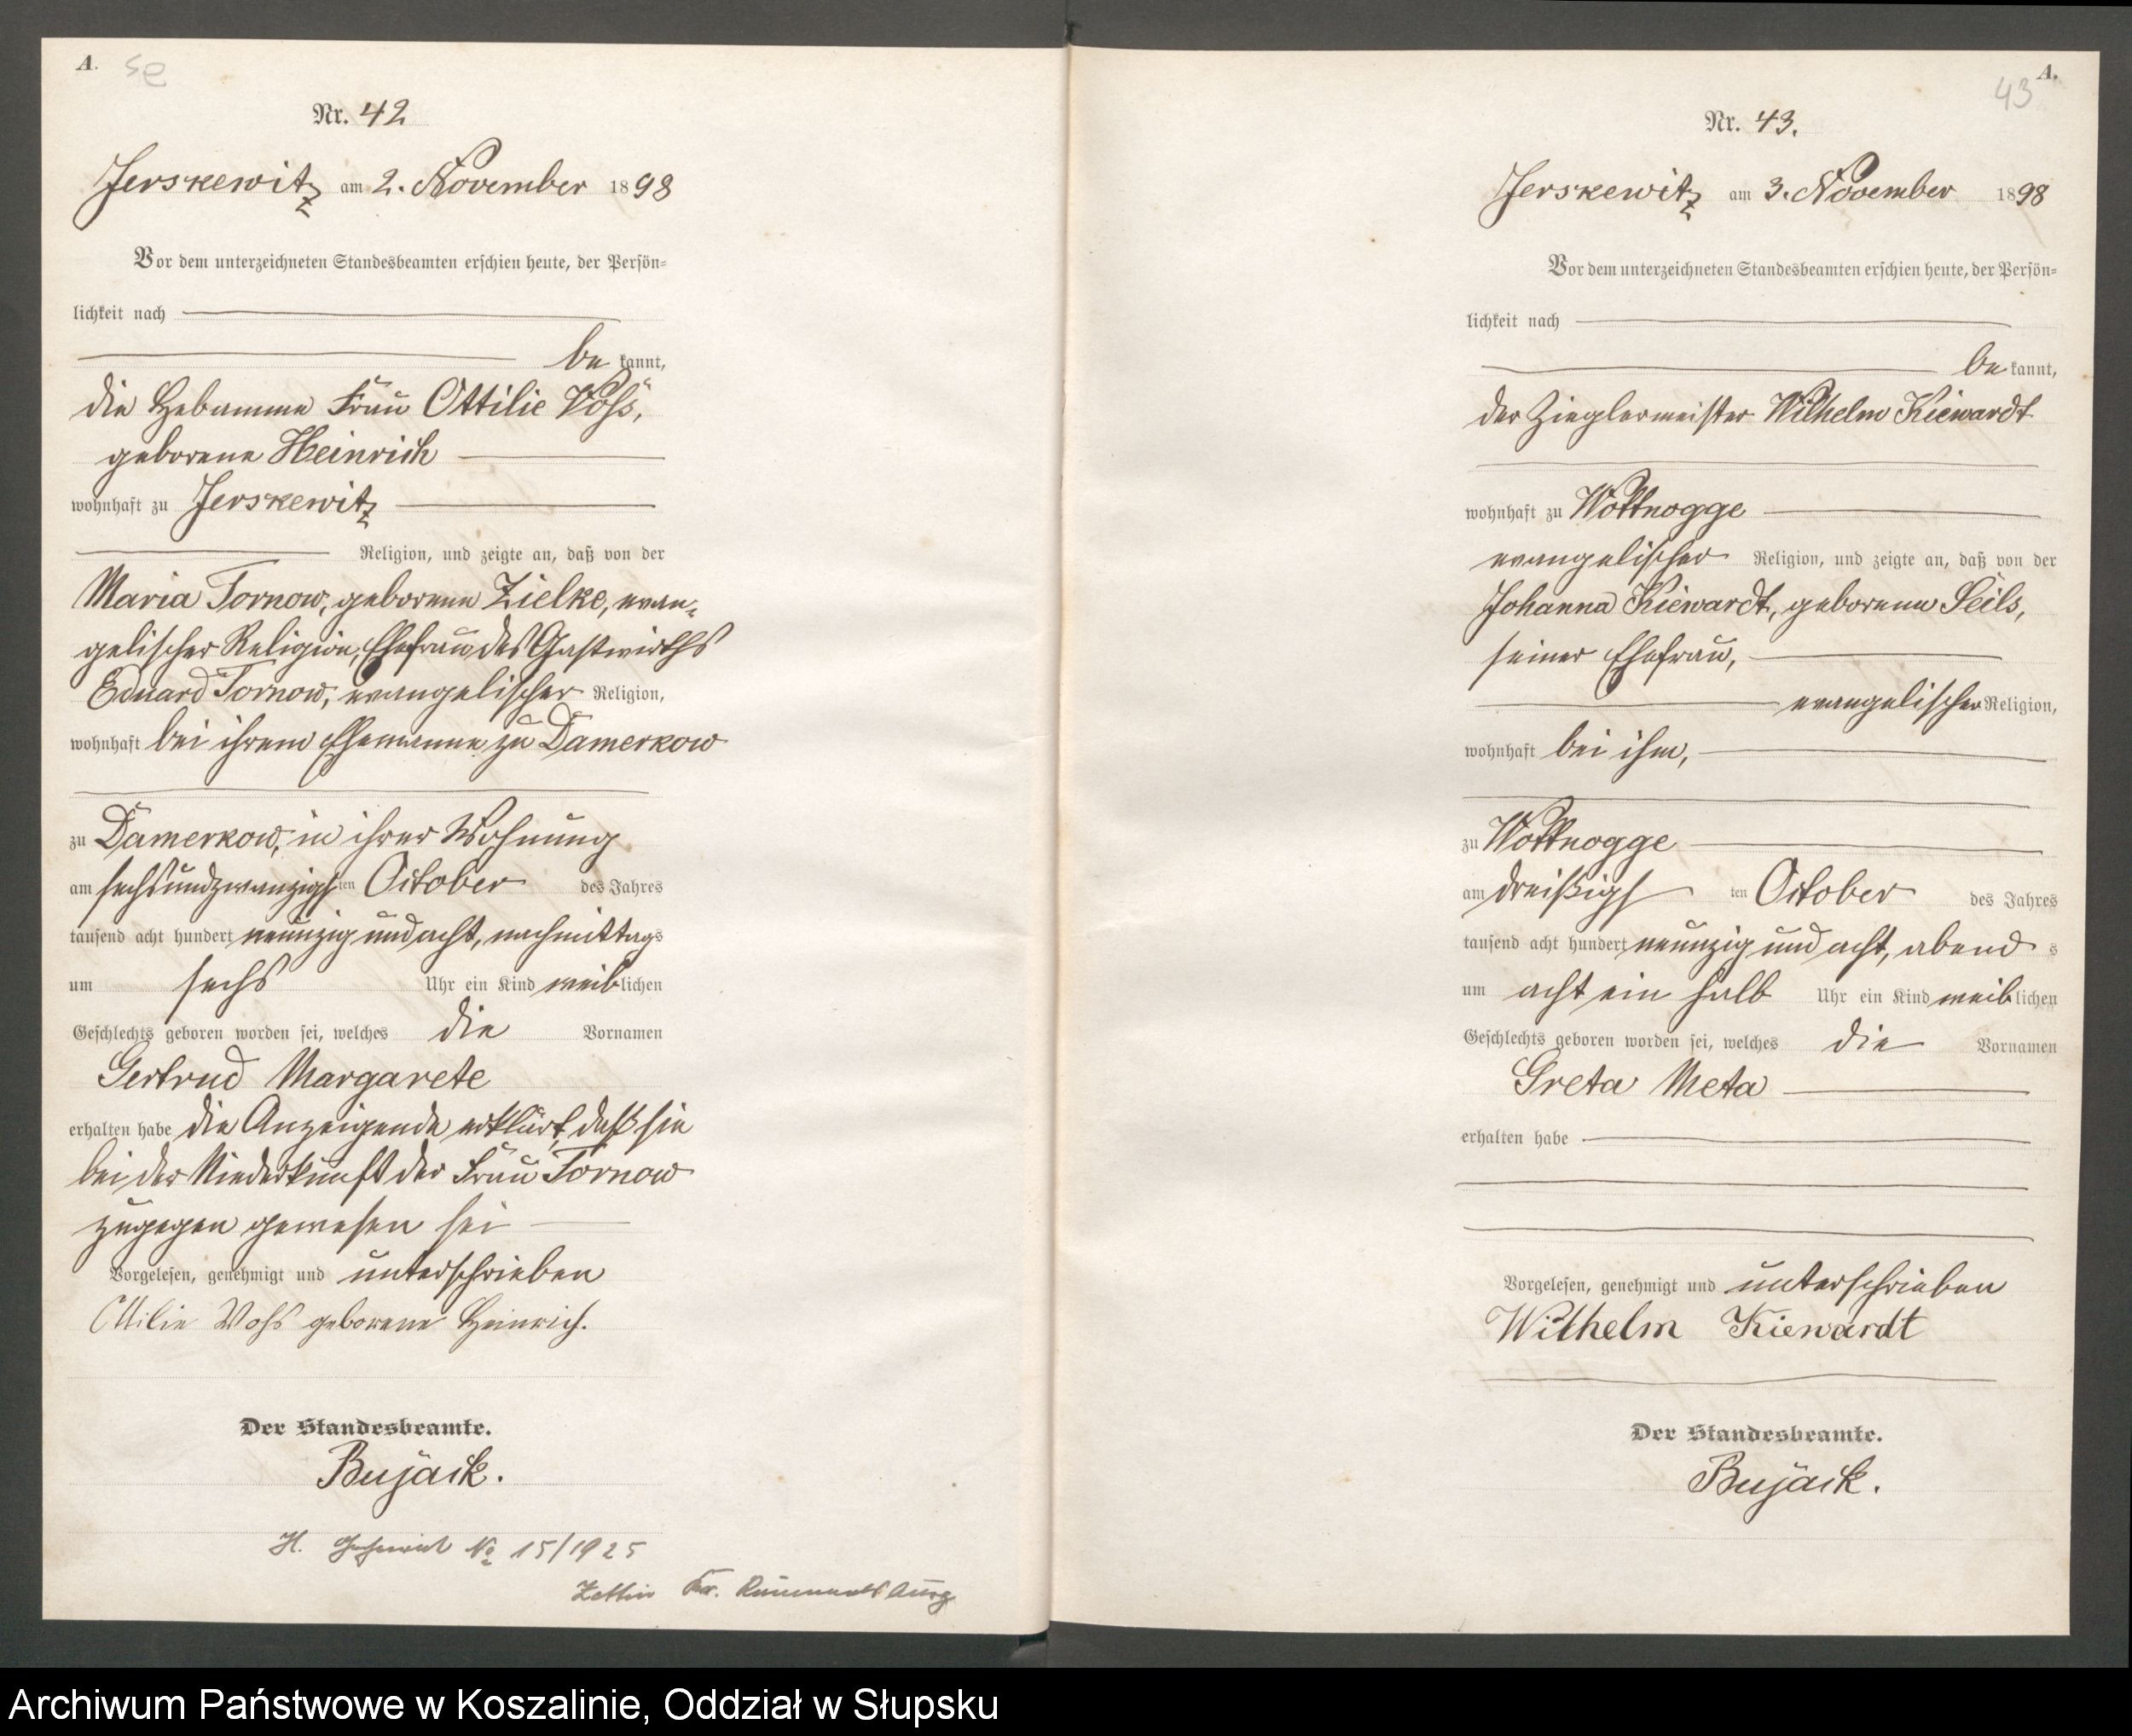 A. se
Nr. 42
Jerskewitz am 2. November 1898
Vor dem unterzeichneten Standesbeamten erschien heute, der Persön-
lichkeit nach
be kannt,
die Hebamme Frau Ottilie Voß,
geborene Heinrich
wohnhaft zu Jerskewitz
Religion, und zeigte an, daß von der
Maria Tornow, geborenen Zielke, evan-
gelischer Religion, Ehefrau des Gastwirths
Eduard Tornow, evangelischer Religion,
wohnhaft bei ihrem Ehemanne zu Damerkow
zu Damerkow, in ihrer Wohnung
am sechsundzwanzigsten October des Jahres
tausend acht hundert neunzig und acht, nachmittags
um sechs Uhr ein Kind weiblichen
Geschlechts geboren worden sei, welches die Vornamen
Gertrud Margarete
erhalten habe die Anzeigende erklärt, daß sie
bei der Niederkunft der Frau Tornow
zugegen gewesen sei
Vorgelesen, genehmigt und unterschrieben
Ottilie Voß geborene Heinrich.
Der Standesbeamte.
Bujack.
H. No 15/1925
Zettin Kr. Rummelsburg
A.
43
Nr. 43.
Jerskewitz am 3. November 1898
Vor dem unterzeichneten Standesbeamten erschien heute, der Persön-
lichkeit nach
be kannt,
der Zieglermeister Wilhelm Kiewardt
wohnhaft zu Wottnogge
evangelischer Religion, und zeigte an, daß von der
Johanna Kiewardt, geborenen Seils,
seiner Ehefrau,
evangelischer Religion,
wohnhaft bei ihm,
zu Wottnogge
am dreißigsten October des Jahres
tausend acht hundert neunzig und acht, abends
um acht ein halb Uhr ein Kind weiblichen
Geschlechts geboren worden sei, welches die Vornamen
Greta Meta
erhalten habe
Vorgelesen, genehmigt und unterschrieben
Wilhelm Kiewardt
Der Standesbeamte.
Bujack.
Archiwum Państwowe w Koszalinie, Oddział w Słupsku